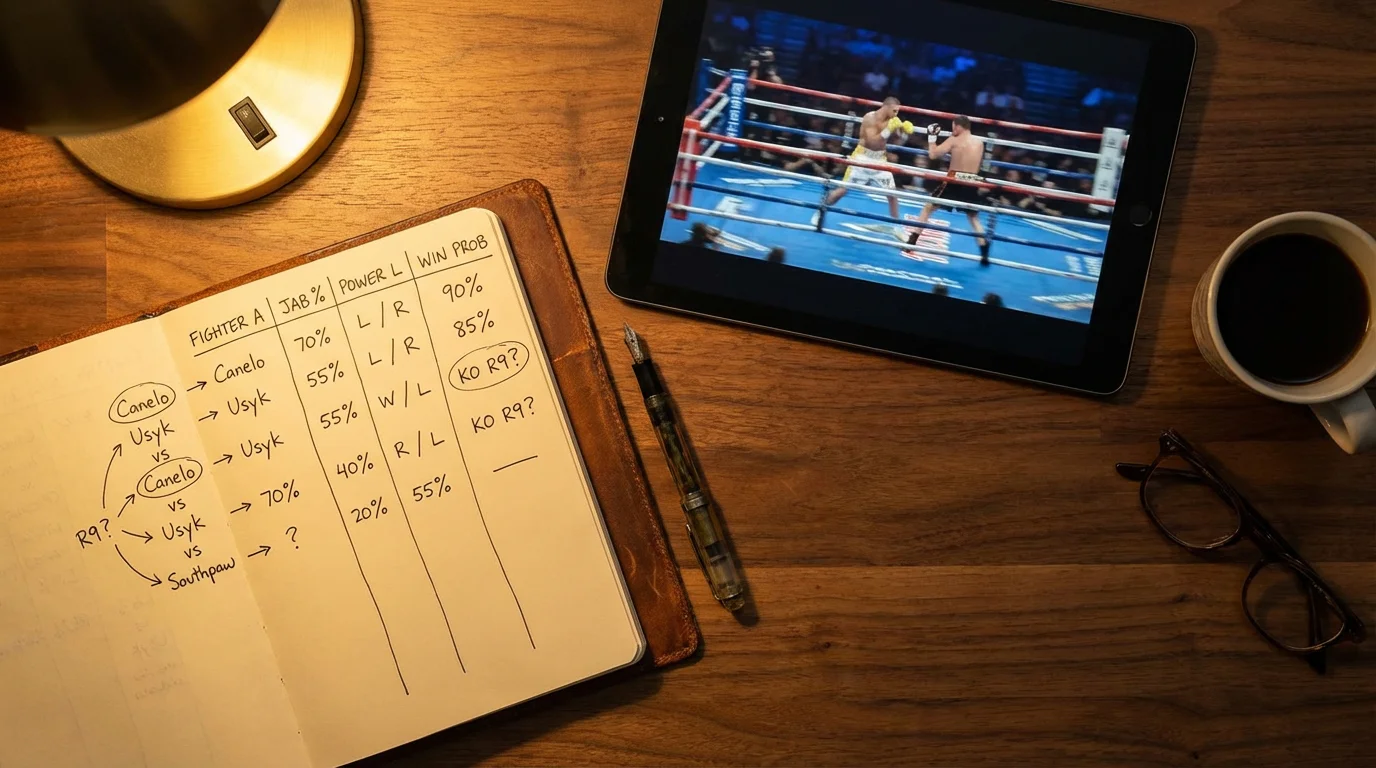 FIGHTER A JAB% POWER L WIN PROB
Canelo → Canelo 70% L / R 90%
Usyk → Usyk 55% L / R 85%
vs
Canelo → Usyk 55% W / L KO R9?
vs
R9? Usyk → 70% 40% R / L KO R9?
vs
Southpaw → ? 20% 55% —